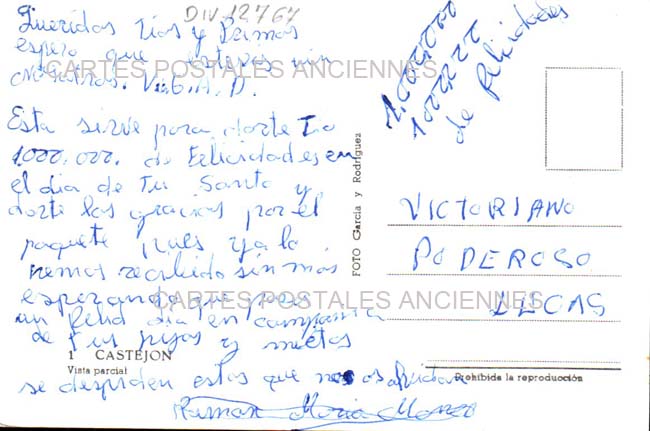 DIV 12767
Queridos Tios y Primos
espero que esteis bien
Nosotros. V.B.G.A.D.
CARTES POSTALES ANCIENNES
Esta sirve para darte Tio
1.000.000. de Felicidades en
el dia de Tu Santo y
darte las gracias por el
paquete pues ya lo
hemos recibido sin mas
esperando que pases
un feliz dia en compañia
de tus hijos y nietos
1 CASTEJON
Vista parcial
se despiden estos que no os olvidan
Ramon Maria
FOTO Garcia y Rodríguez
1.000.000
de felicidades
VICTORIANO
PODEROSO
CARTES POSTALES ANCIENNES
LECAS
Prohibida la reproducción